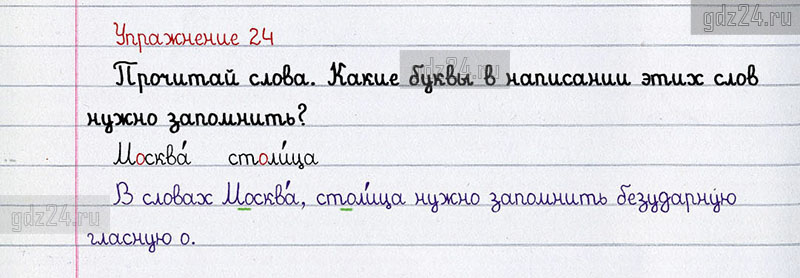 gdz24.ru
Упражнение 24
Прочитай слова. Какие буквы в написании этих слов
gdz24.ru
нужно запомнить?
Москва́ столи́ца
В словах Москва́, столи́ца нужно запомнить безударную
gdz24.ru
гласную о.